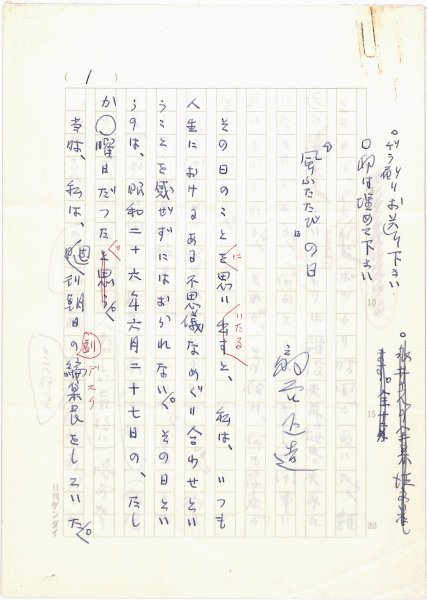 ○ゲラ刷りお送り下さい
○印は埋めて下さい
風ふたたびの日
扇谷正造
その日のことを思い出すと、私は、いつも
に
いたる
人生におけるある不思儀なめぐり合わせとい
うことを感ぜずにはおられない。その日とい
うのは、昭和二十六年六月二十七日の、たし
か○曜日だつたと思う。
当時、私は、週刊朝日の編集長をしていた。
副
デスク
(1)
10
15
20
日刊ゲンダイ